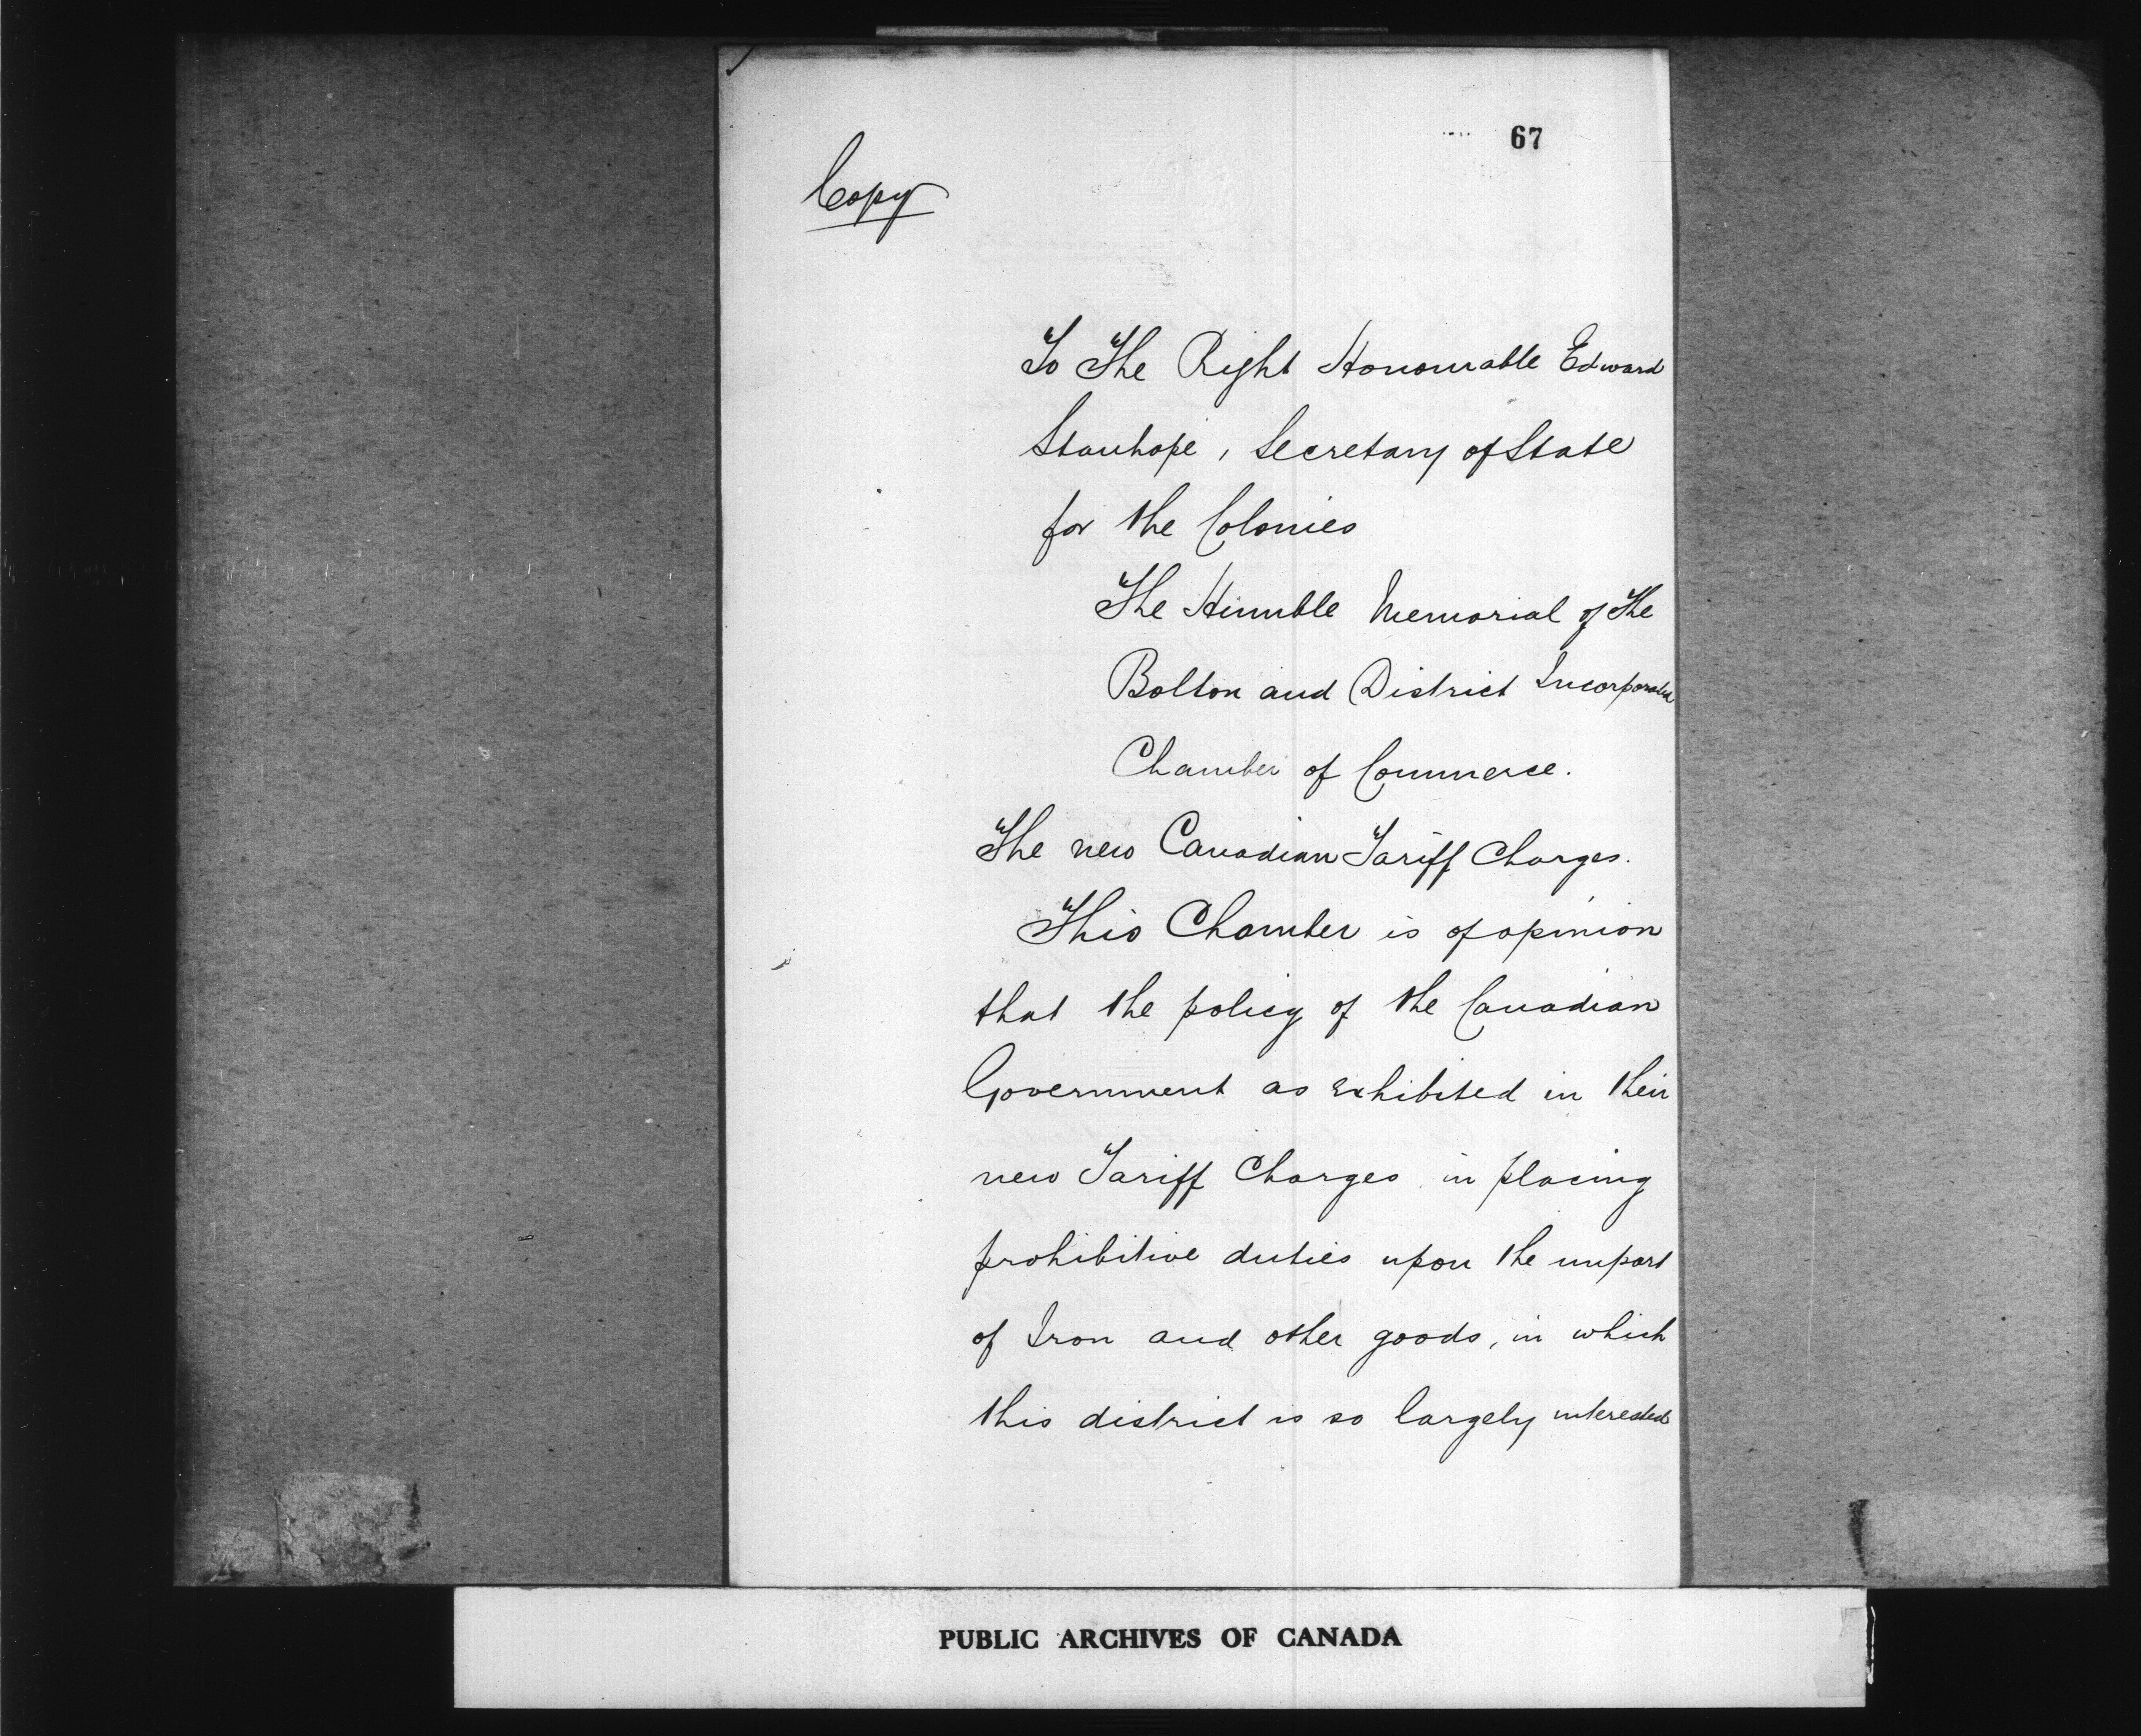 67
Copy
To The Right Honourable Edward
Stanhope, Secretary of State
for the Colonies
The Humble Memorial of The
Bolton and District Incorporated
Chamber of Commerce.
The new Canadian Tariff Charges.
This Chamber is of opinion
that the policy of the Canadian
Government as exhibited in their
new Tariff Charges in placing
prohibitive duties upon the import
of Iron and other goods, in which
this district is so largely interested
PUBLIC ARCHIVES OF CANADA